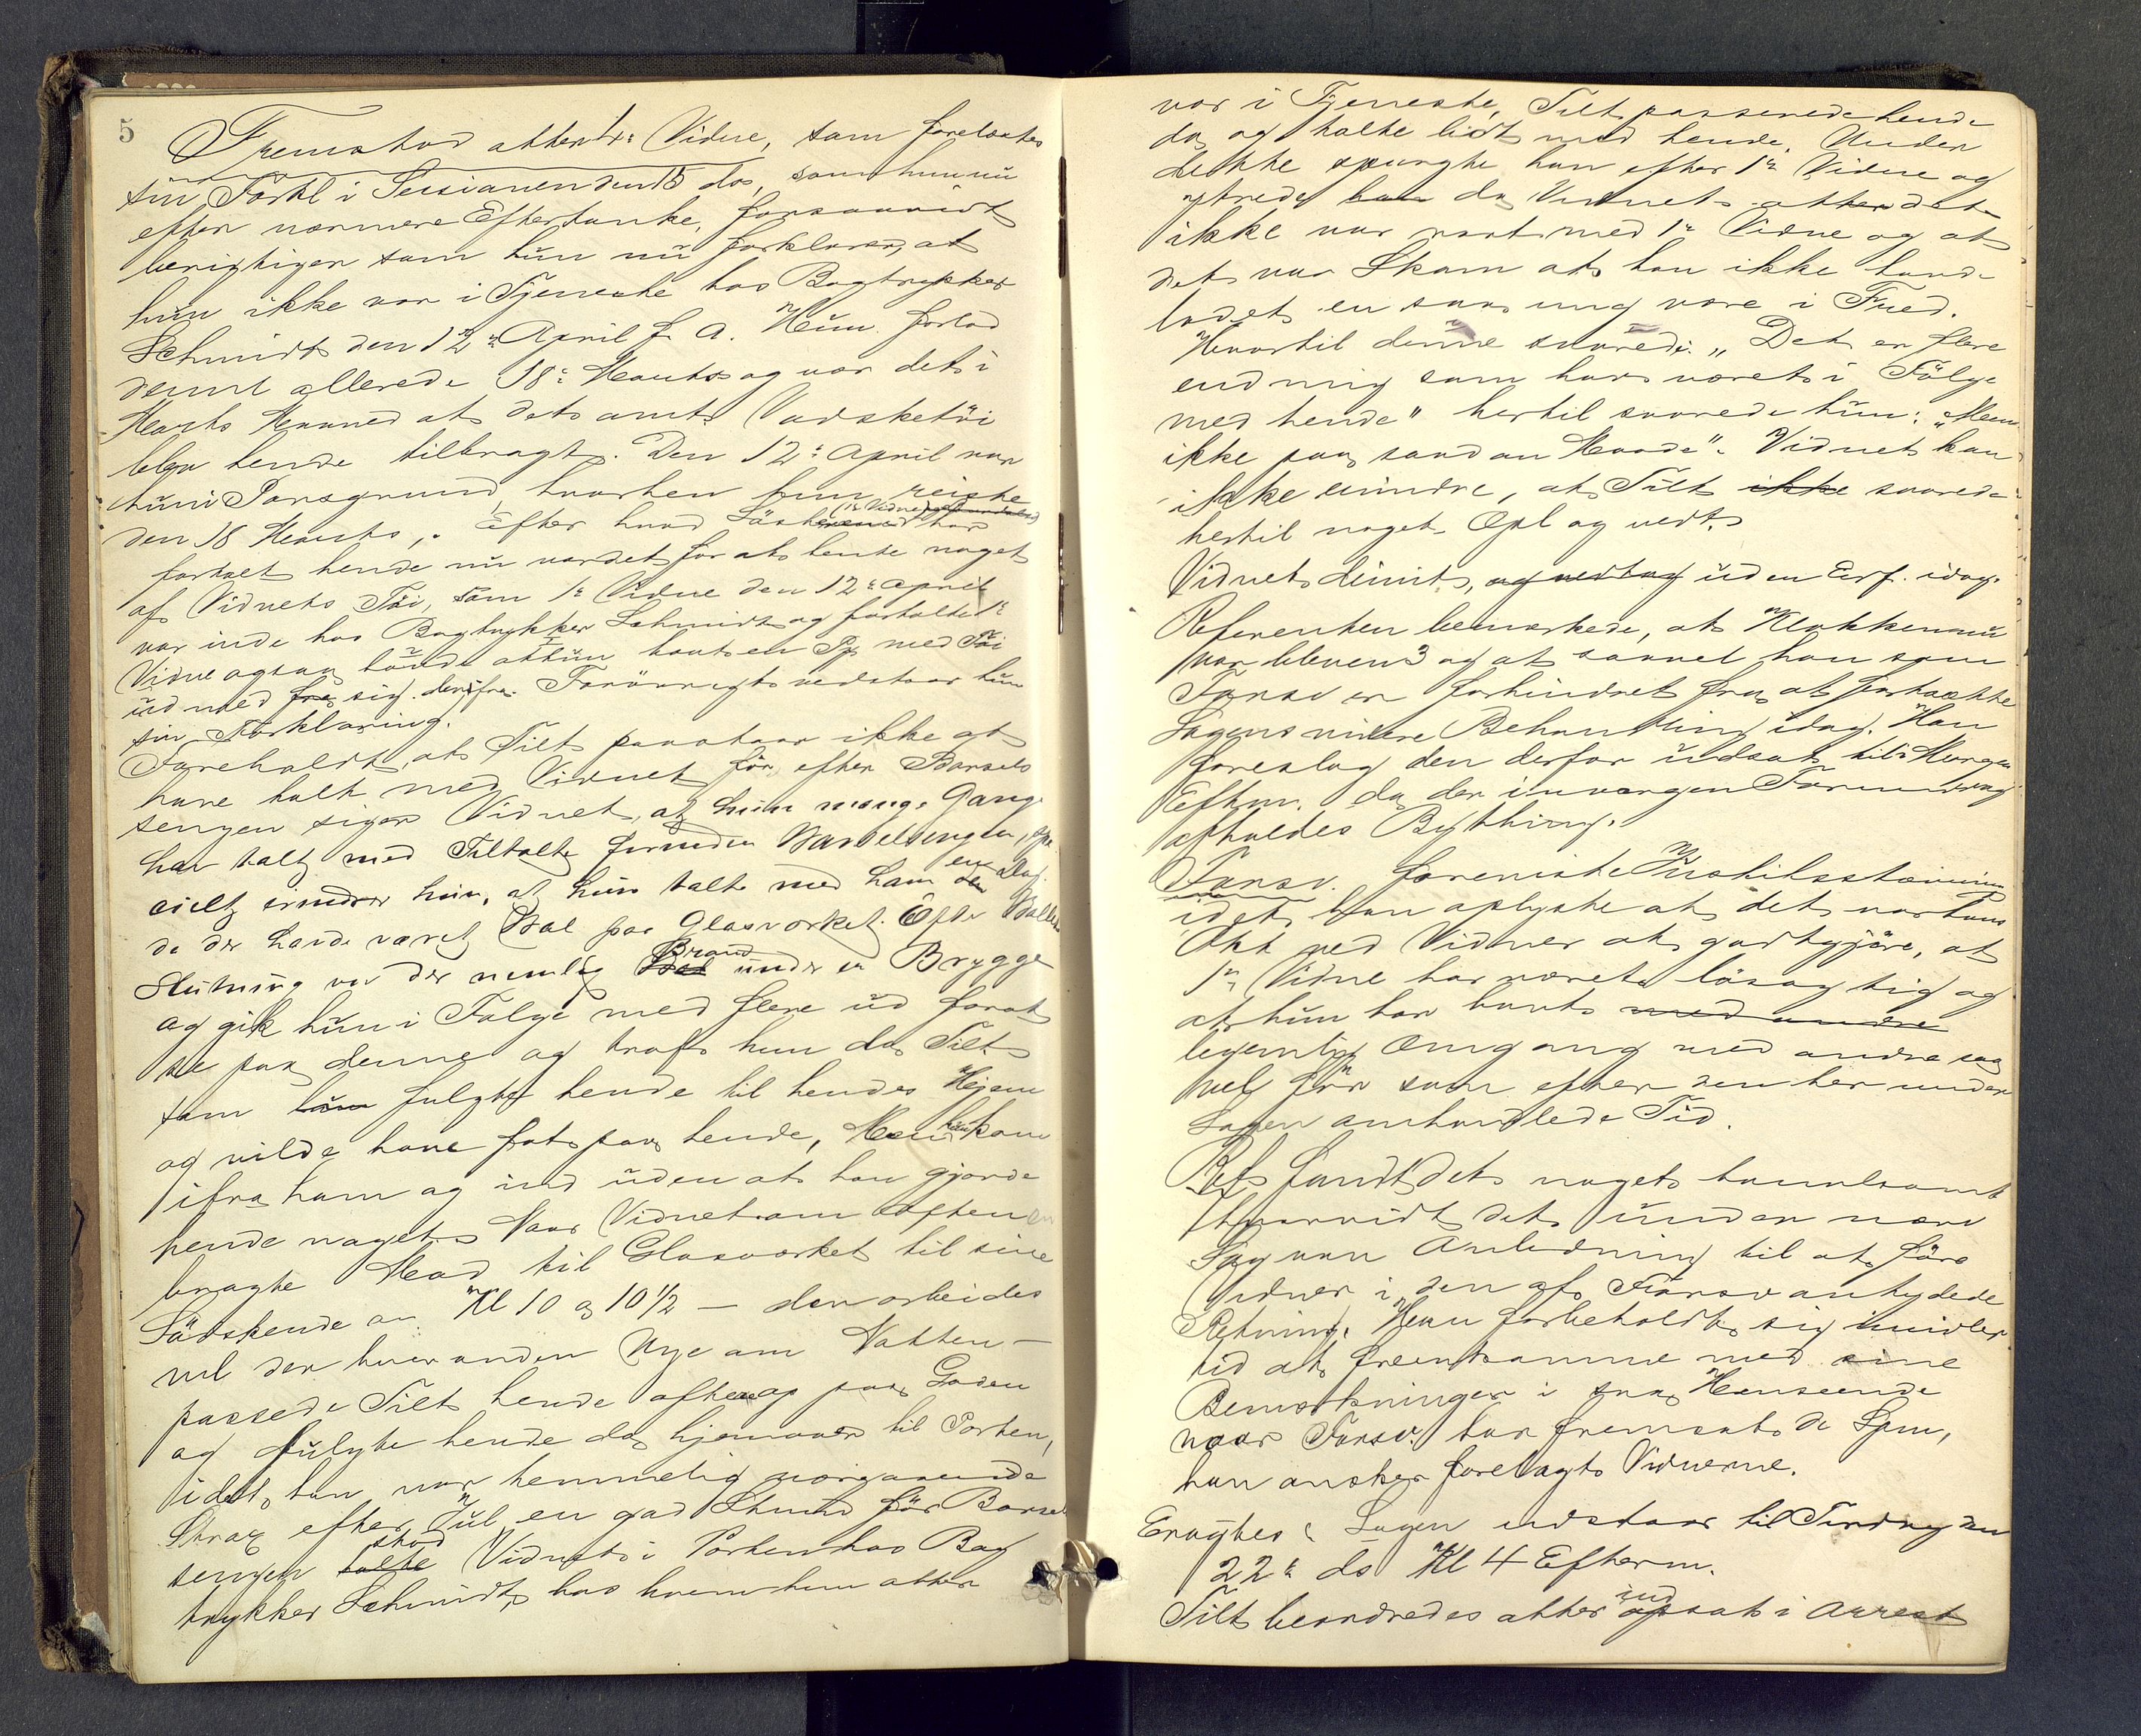 5
Fremstod atter 4de Vidne, som forelæstes
sin Forkl i Sessionen den 15 ds, som hun nu
efter nærmere Eftertanke, forsaavidt
berigtiger som hun nu forklarer, at
hun ikke var i Tjeneste hos Bogtrykker
Schmidt den 12te April f. A. Hun forlod
denne allerede 18de Marts og var det i
Marts Maaned at dets omts Vadsketöi
blev hende tilbragt. Den 12te April var
hun i Porsgrund, hvorhen hun reiste
den 18 Marts, . Efter hvad Søsteren (1ste Vidne) har
fortalt hende nu var det for at hente noget
af Vidnets Töi, som 1ste Vidne den 12te April
var inde hos Bogtrykker Schmidt og fortalte 1ste
Vidne ogsaa hende at hun havt en Py med Töi
ud med fra sig derifra. Forövrigt vedstaar hun
sin Forklaring.
Foreholdt, at Tilt paastaar ikke at
have talt med Vidnet för efter Barsels
sengen siger Vidnet, at hun mange Gange
har talt med Tiltalte forinden Barselsengen, spe
cielt erindrer hun, at hun talte med ham en Dag
da der havde været Bal paa Glasværket. Efter Ballets
Slutning var der nemlig Brand under en Brygge
og gik hun i Følge med flere ud forat
se paa denne og traf hun da Tilt
som fulgte hende til hendes Hjem
og vilde have fat paa hende, Men hun kom
ifra ham og ind uden at han gjorde
hende noget. Naar Vidnet om Aftenen
bragte Mad til Glasværket til sine
Södskende ca. Kl 10 a 10 1/2 — der arbeides
ved der hver anden Uge om Natten —
passede Tilt hende oftere op paa Gaden
og fulgte hende da hjemover til Porten,
idet han var hemmelig
Strax efter Jul en god Stund för Barsel
sengen stod Vidnets i Porten hos Bog
trykker Schmidt, hos hvem hun atter
var i Tjeneste, Tilt passerede hende
da og talte lidt med hende. Under
dette spurgte han efter 1ste Vidne og
ytrede da Vidnet at det
ikke var rart med 1ste Vidne og at
det var Skam at han ikke havde
ladet en saa ung være i Fred.
Hvortil denne svarede: „Det er flere
end mig som har været i Fölge
med hende" hertil svarede hun: „Men
ikke paa saadan Maade". Vidnet kan
ikke erindre, at Tilt ikke svarede
hertil noget. Opl og vedt.
Vidnet dimit, og vedtog uden Erf. idag.
Referenten bemærkede, at Klokken nu
var bleven 3 og at saavel han som
Forsv er forhindret fra at fortsætte
Sagens videre Behandling idag. Han
foreslog den derfor udsat til Morgen
Efterm. da der imorgen Formiddag
afholdes Bything.
Forsv. fremviste
idet han oplyste at det var hans
Akt ved Vidner at godtgjöre, at
1ste Vidne har været lösagtig og
at hun har havt med andre
legemlig Omgang med andre saa
vel för som efter den her under
Sagen omhandlede Tid.
Ref fandt det noget tvivlsomt
hvorvidt det under nærv
Sag var Anledning til at före
Vidner i den af Forsv antydede
Retning. Han forbeholdt sig imidler
tid at fremkomme med sine
Bemærkninger i saa Henseende
naar Forsv. har fremsat de Spm,
han ønsker forelagt Vidnerne.
Eragtes: Sagen udstaar til Tirsdag den
22de ds Kl 4 Efterm.
Tilt beordredes atter indsat i Arrest